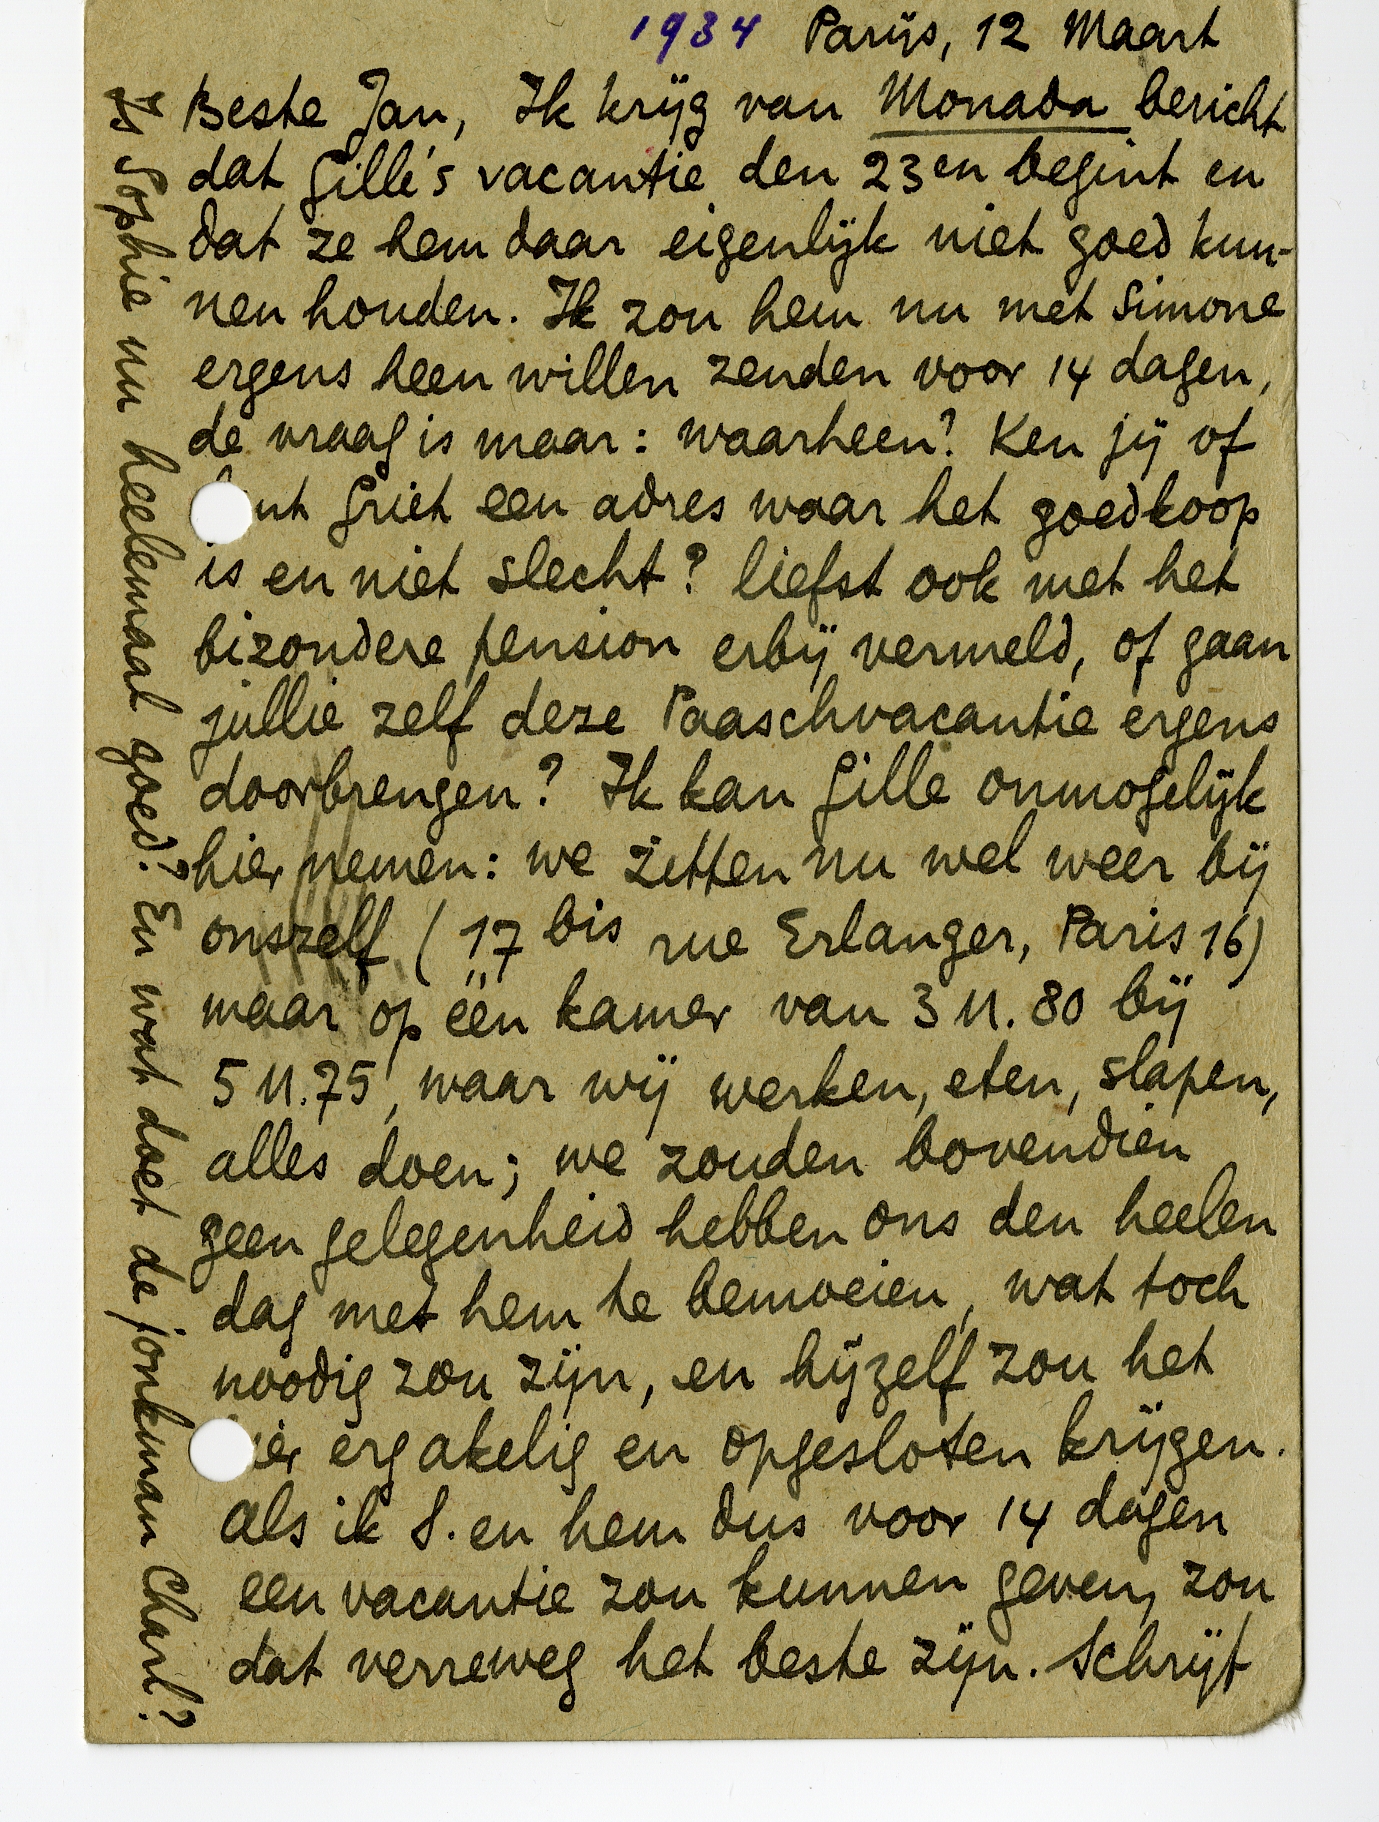 1934 Parijs, 12 Maart
Beste Jan, Ik krijg van Monada bericht
dat Gille's vacantie den 23en begint en
dat ze hem daar eigenlijk niet goed kun-
nen houden. Ik zou hem nu met Simone
ergens heen willen zenden voor 14 dagen,
de vraag is maar: waarheen? Ken jij of
Griet een adres waar het goedkoop
is en niet slecht? liefst ook met het
bizondere pension erbij vermeld, of gaan
jullie zelf deze Paaschvacantie ergens
doorbrengen? Ik kan Gille onmogelijk
hier nemen: we zitten nu wel weer bij
onszelf (17 bis rue Erlanger, Paris 16)
maar op één kamer van 3 M. 80 bij
5 M. 75, waar wij werken, eten, slapen,
alles doen; we zouden bovendien
geen gelegenheid hebben ons den heelen
dag met hem te bemoeien, wat toch
noodig zou zijn, en hijzelf zou het
hier erg akelig en opgesloten krijgen.
Als ik S. en hem dus voor 14 dagen
een vacantie zou kunnen geven, zou
dat verreweg het beste zijn. Schrijf
Is Sophie nu heelemaal goed? En wat doet de jonkman Charl?